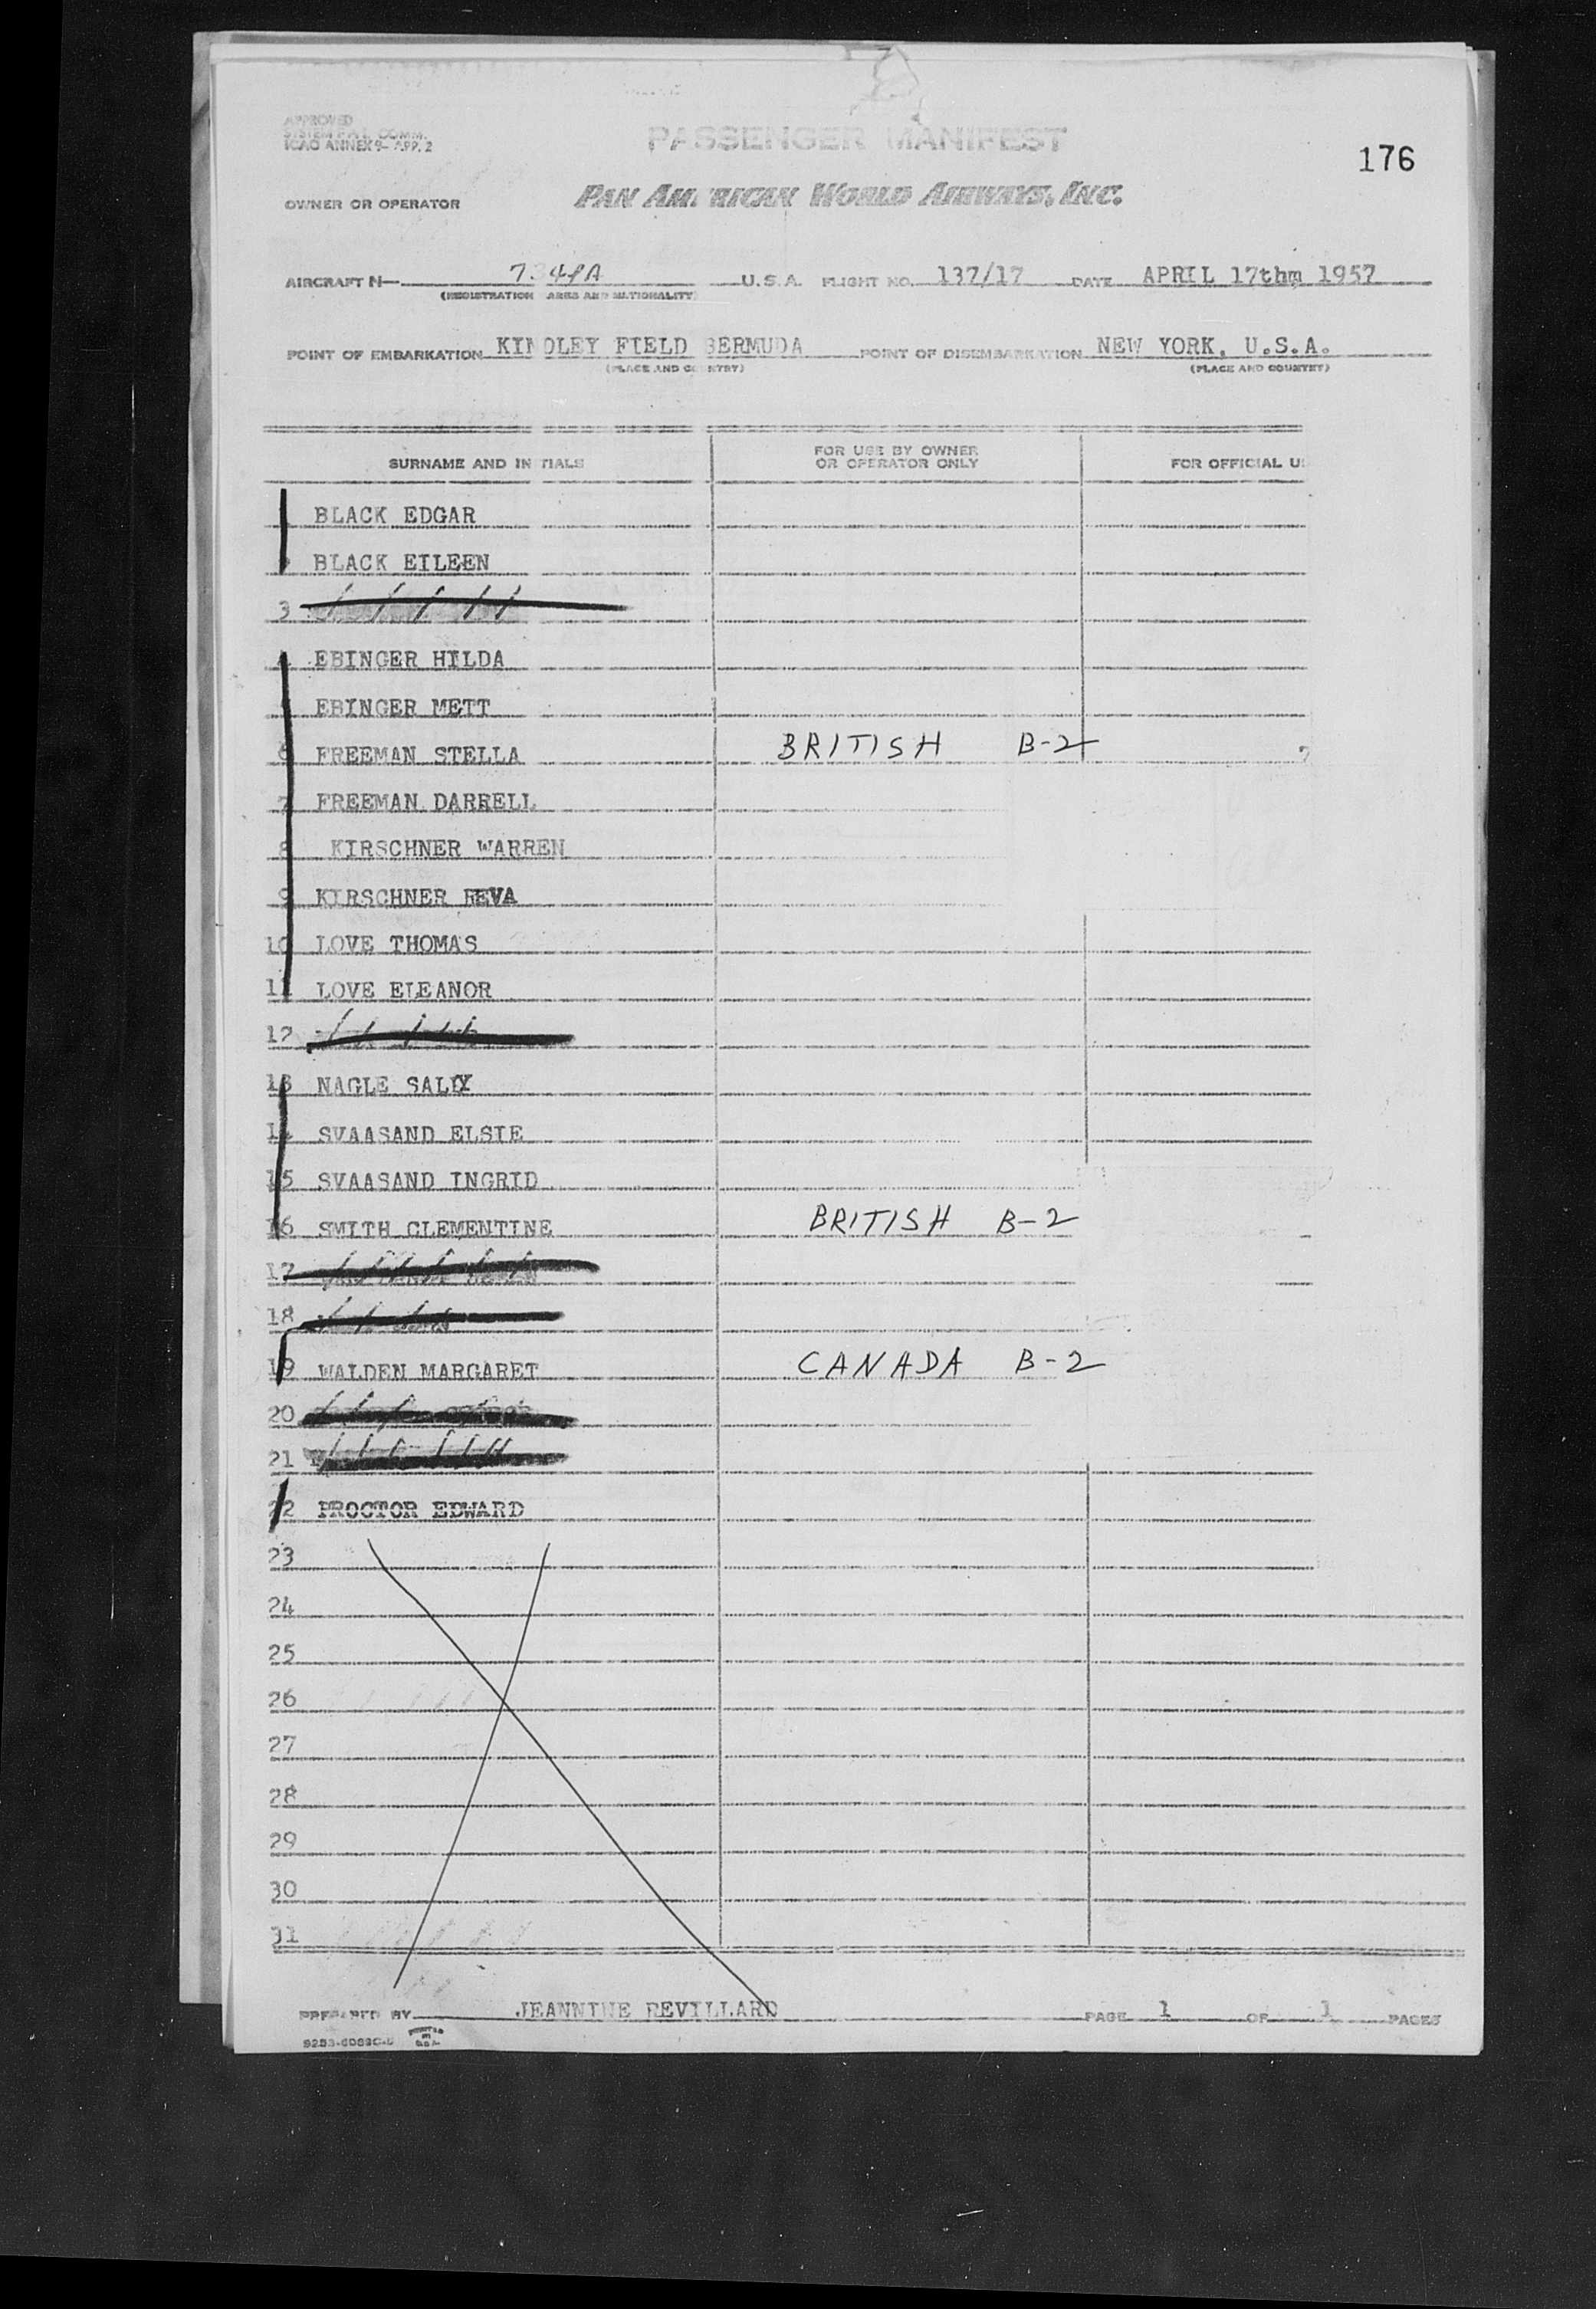 APPROVED
SYSTEM P.A.L. COMM.
ICAO ANNEX 9- APP. 2
PASSENGER MANIFEST
176
OWNER OR OPERATOR PAN AMERICAN WORLD AIRWAYS, INC.
AIRCRAFT N— U.S.A. FLIGHT NO. 137/17 DATE APRIL 17thm 1957
(REGISTRATION MARKS AND NATIONALITY)
POINT OF EMBARKATION KINDLEY FIELD BERMUDA POINT OF DISEMBARKATION NEW YORK, U.S.A.
(PLACE AND COUNTRY) (PLACE AND COUNTRY)
SURNAME AND INITIALS FOR USE BY OWNER OR OPERATOR ONLY FOR OFFICIAL U
BLACK EDGAR
BLACK EILEEN
3
EBINGER HILDA
EBINGER METT
6 FREEMAN STELLA BRITISH B-2
7 FREEMAN DARRELL
8 KIRSCHNER WARREN
9 KIRSCHNER REVA
10 LOVE THOMAS
11 LOVE ELEANOR
12
13 NAGLE SALLY
14 SVAASAND ELSIE
15 SVAASAND INGRID
16 SMITH CLEMENTINE BRITISH B-2
17
18
19 WALDEN MARGARET CANADA B-2
20
21
22 PROCTOR EDWARD
23
24
25
26
27
28
29
30
31
PREPARED BY JEANNINE REVILLARD PAGE 1 OF 1 PAGES